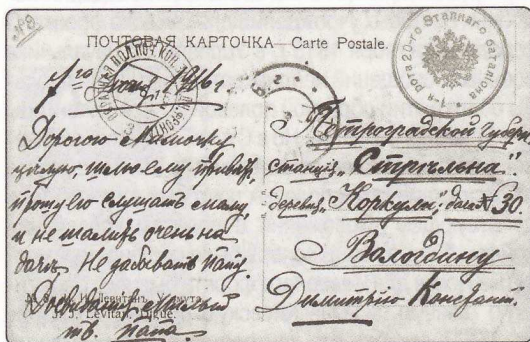 №8
ПОЧТОВАЯ КАРТОЧКА — Carte Postale.
1-я рота 20-го Этапнаго баталіона
1го 1916 г.
Дорогого
цѣлую, шлю ему привѣтъ,
прошу его слушать маму,
и не шалить очень на
дачѣ. Не забывать папу
И. И. Левитанъ. У омута.
J. J. Levitan. Fugue.
тв. папа.
Петроградской губерн.
станція „Стрѣльна".
деревня „Коркули", дача № 30
Вологдину
Димитрію Констант.